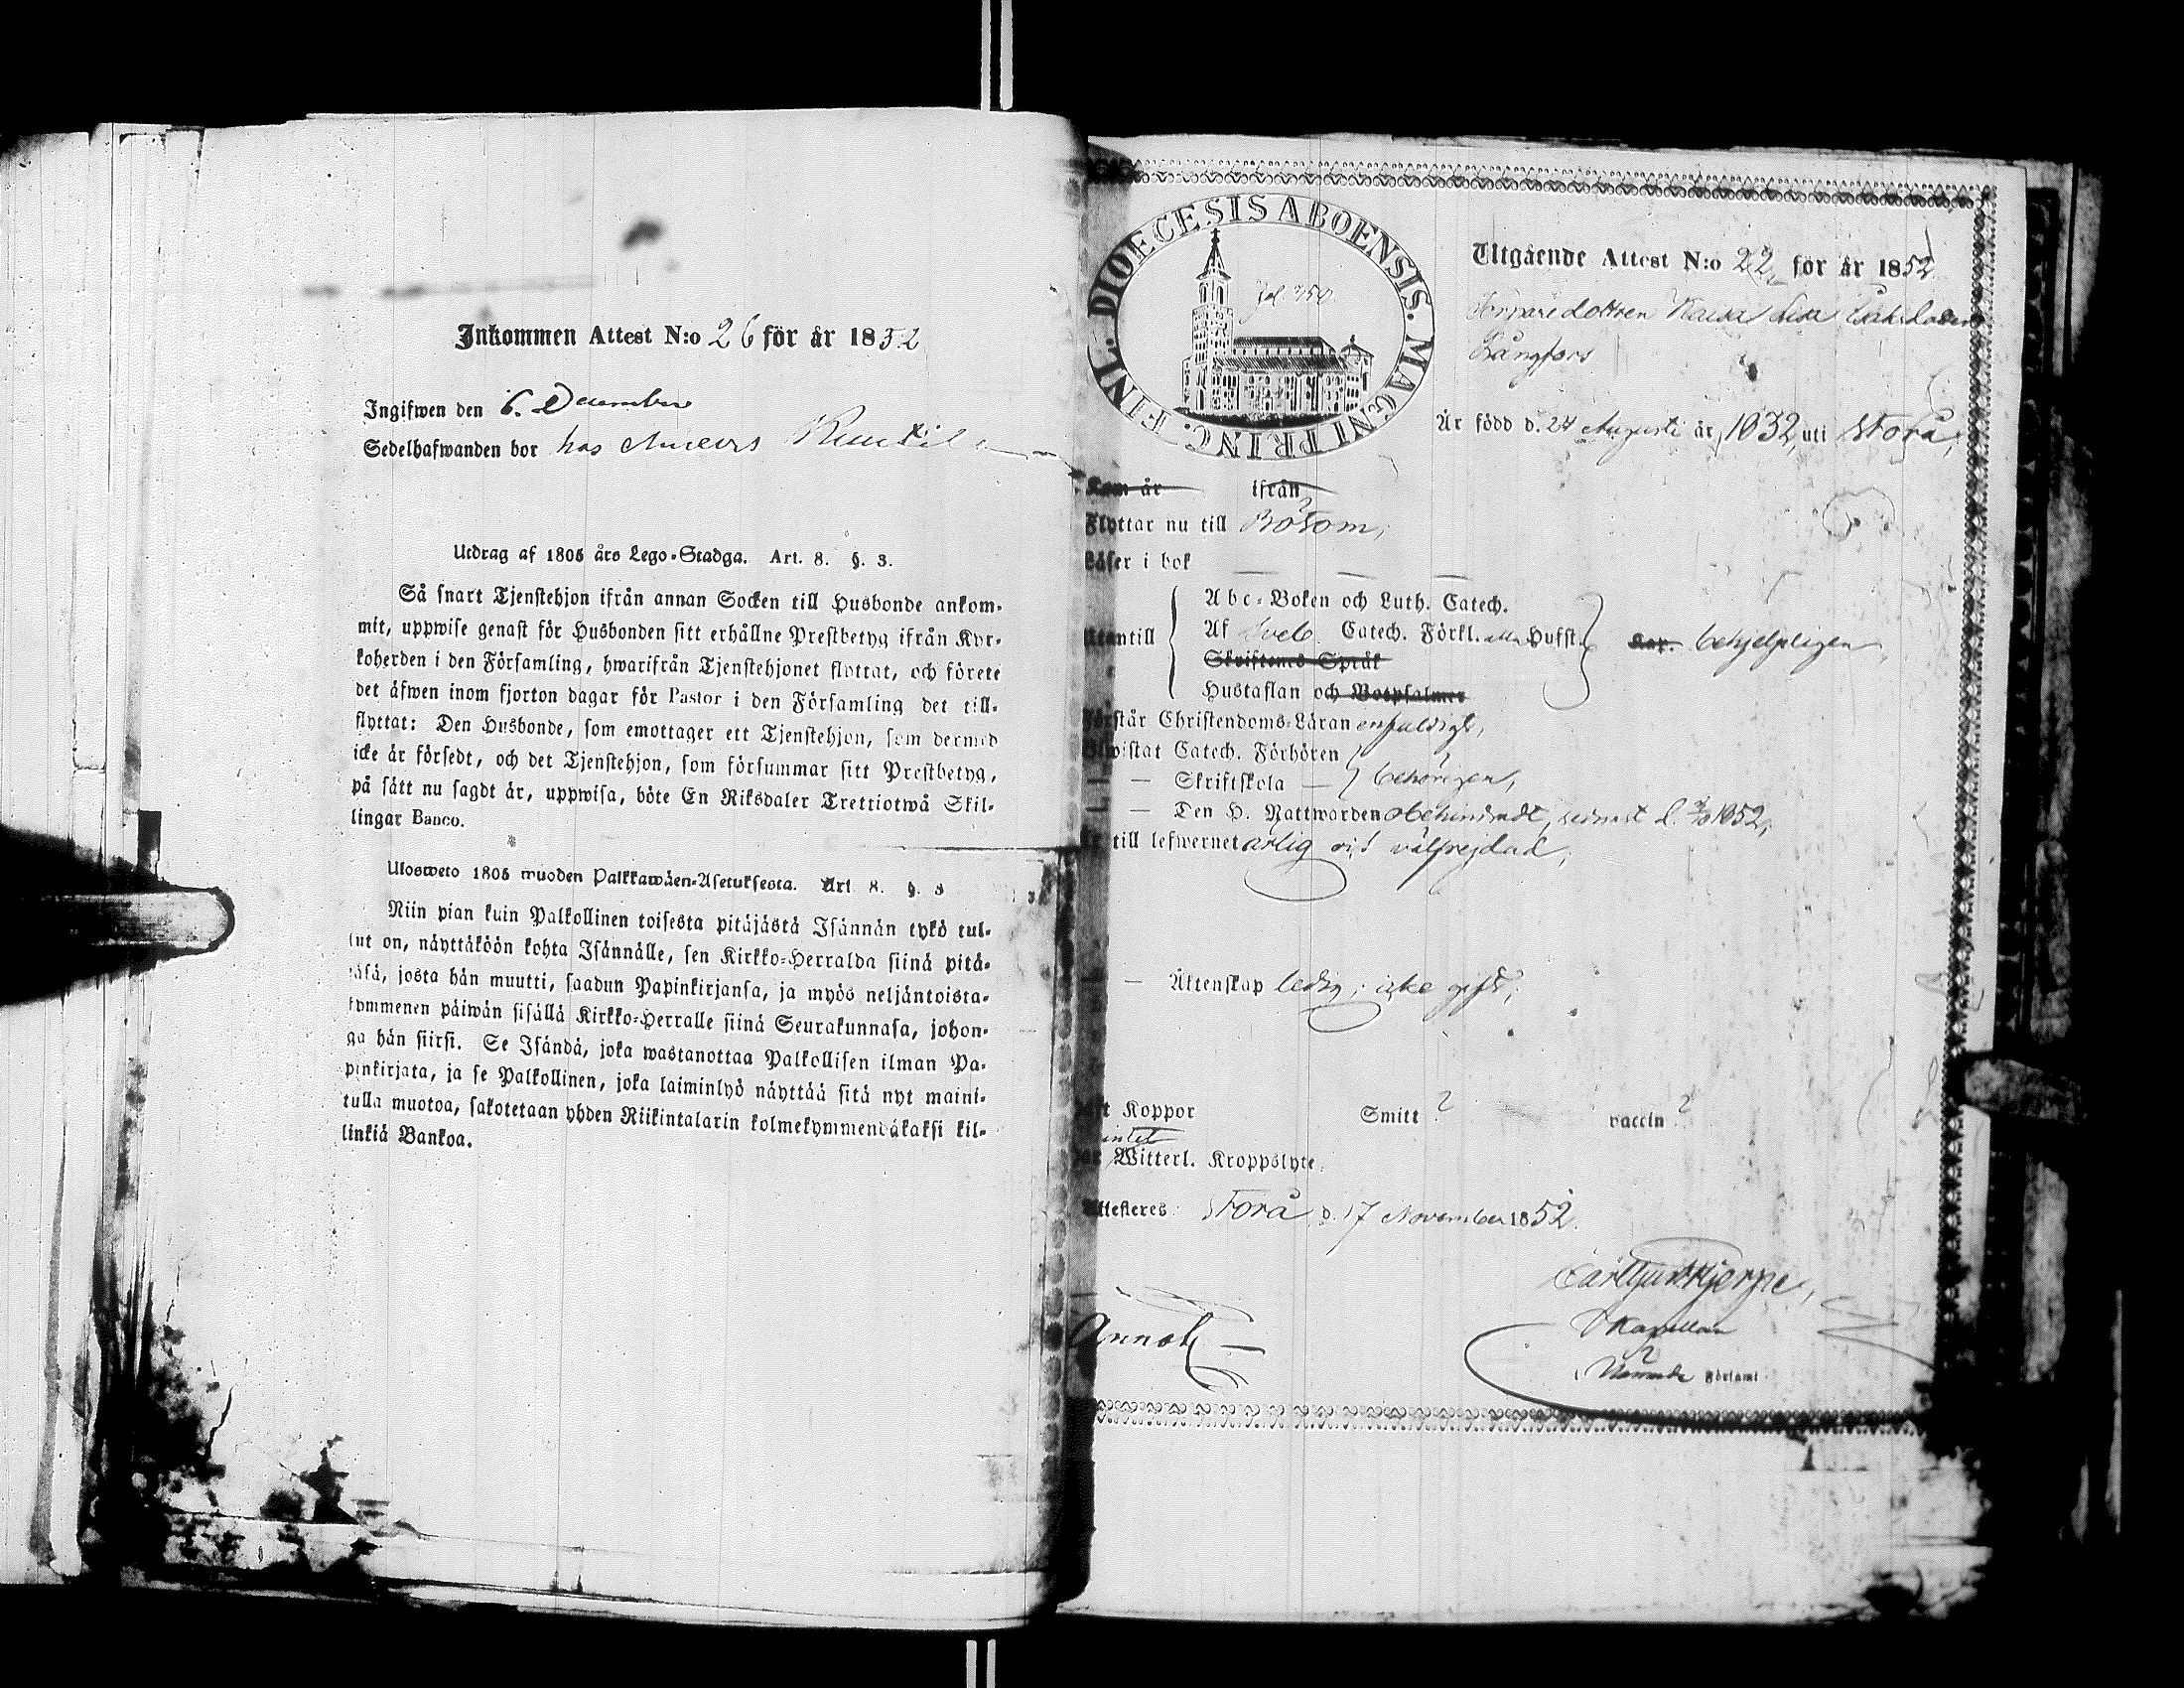 Inkommen Attest N:o 26 för år 1852
Ingifwen den 6. December
Sedelhafwanden bor hos
Utdrag af 1805 års Lego-Stadga. Art. 8. §. 3.
Så snart Tjenstehjon ifrån annan Socken till Husbonde ankom-
mit, uppwise genast för Husbonden sitt erhållne Prestbetyg ifrån Kyr-
koherden i den Församling, hwarifrån Tjenstehjonet flyttat, och förete
det äfwen inom fjorton dagar för Pastor i den Församling det till-
flyttat: Den Husbonde, som emottager ett Tjenstehjon, som dermed
icke är försedt, och det Tjenstehjon, som försummar sitt Prestbetyg,
på sätt nu sagdt är, uppwisa, böte En Riksdaler Trettiotwå Skil-
lingar Banco.
Ulosweto 1805 wuoden Palkkawäen-Asetuksesta. Art. 8. §. 3
Niin pian kuin Palkollinen toisesta pitäjästä Isännän tykö tul-
lut on, näyttäköön kohta Isännälle, sen Kirkko-Herralda siinä pitä-
jäsä, josta hän muutti, saadun Papinkirjansa, ja myös neljäntoista-
kymmenen päiwän sisällä Kirkko-Herralle siinä Seurakunnasa, johon-
ga hän siirsi. Se Isändä, joka wastanottaa Palkollisen ilman Pa-
pinkirjata, ja se Palkollinen, joka laiminlyö näyttää sitä nyt maini-
tulla muotoa, sakotetaan yhden Riikintalarin kolmekymmendäkaksi kil-
linkiä Bankoa.
FINL. DIOECESIS ABOENSIS. MAGNI PRINC.
Utgående Attest N:o 22 för år 1852
Torparedottren Kaisa Lisa
Långfors
Är född d. 24 Augusti år 1832, uti Storå,
Kom år ifrån
Flyttar nu till Bötom,
Läser i bok
Abc-Boken och Luth. Catech.
Utantill Af Sveb. Catech. Förkl. Hufst. kap. behjelpligen,
Skriftenes Språk
Hustaflan och Botpsalmer
Förstår Christendoms-Läran enfaldigt,
Biwistat Catech. Förhören
— Skriftskola — behörigen,
— Den H. Nattwarden obehindradt, sednast d. 1852,
Är till lefwernet ärlig och välfrejdad,
— Äktenskap ledig, icke gift,
Haft Koppor Smitt ? vaccin ?
intet
Har Witterl. Kroppslyte
Attesteres Storå d. 17 November 1852.
Kapellan
Församl.